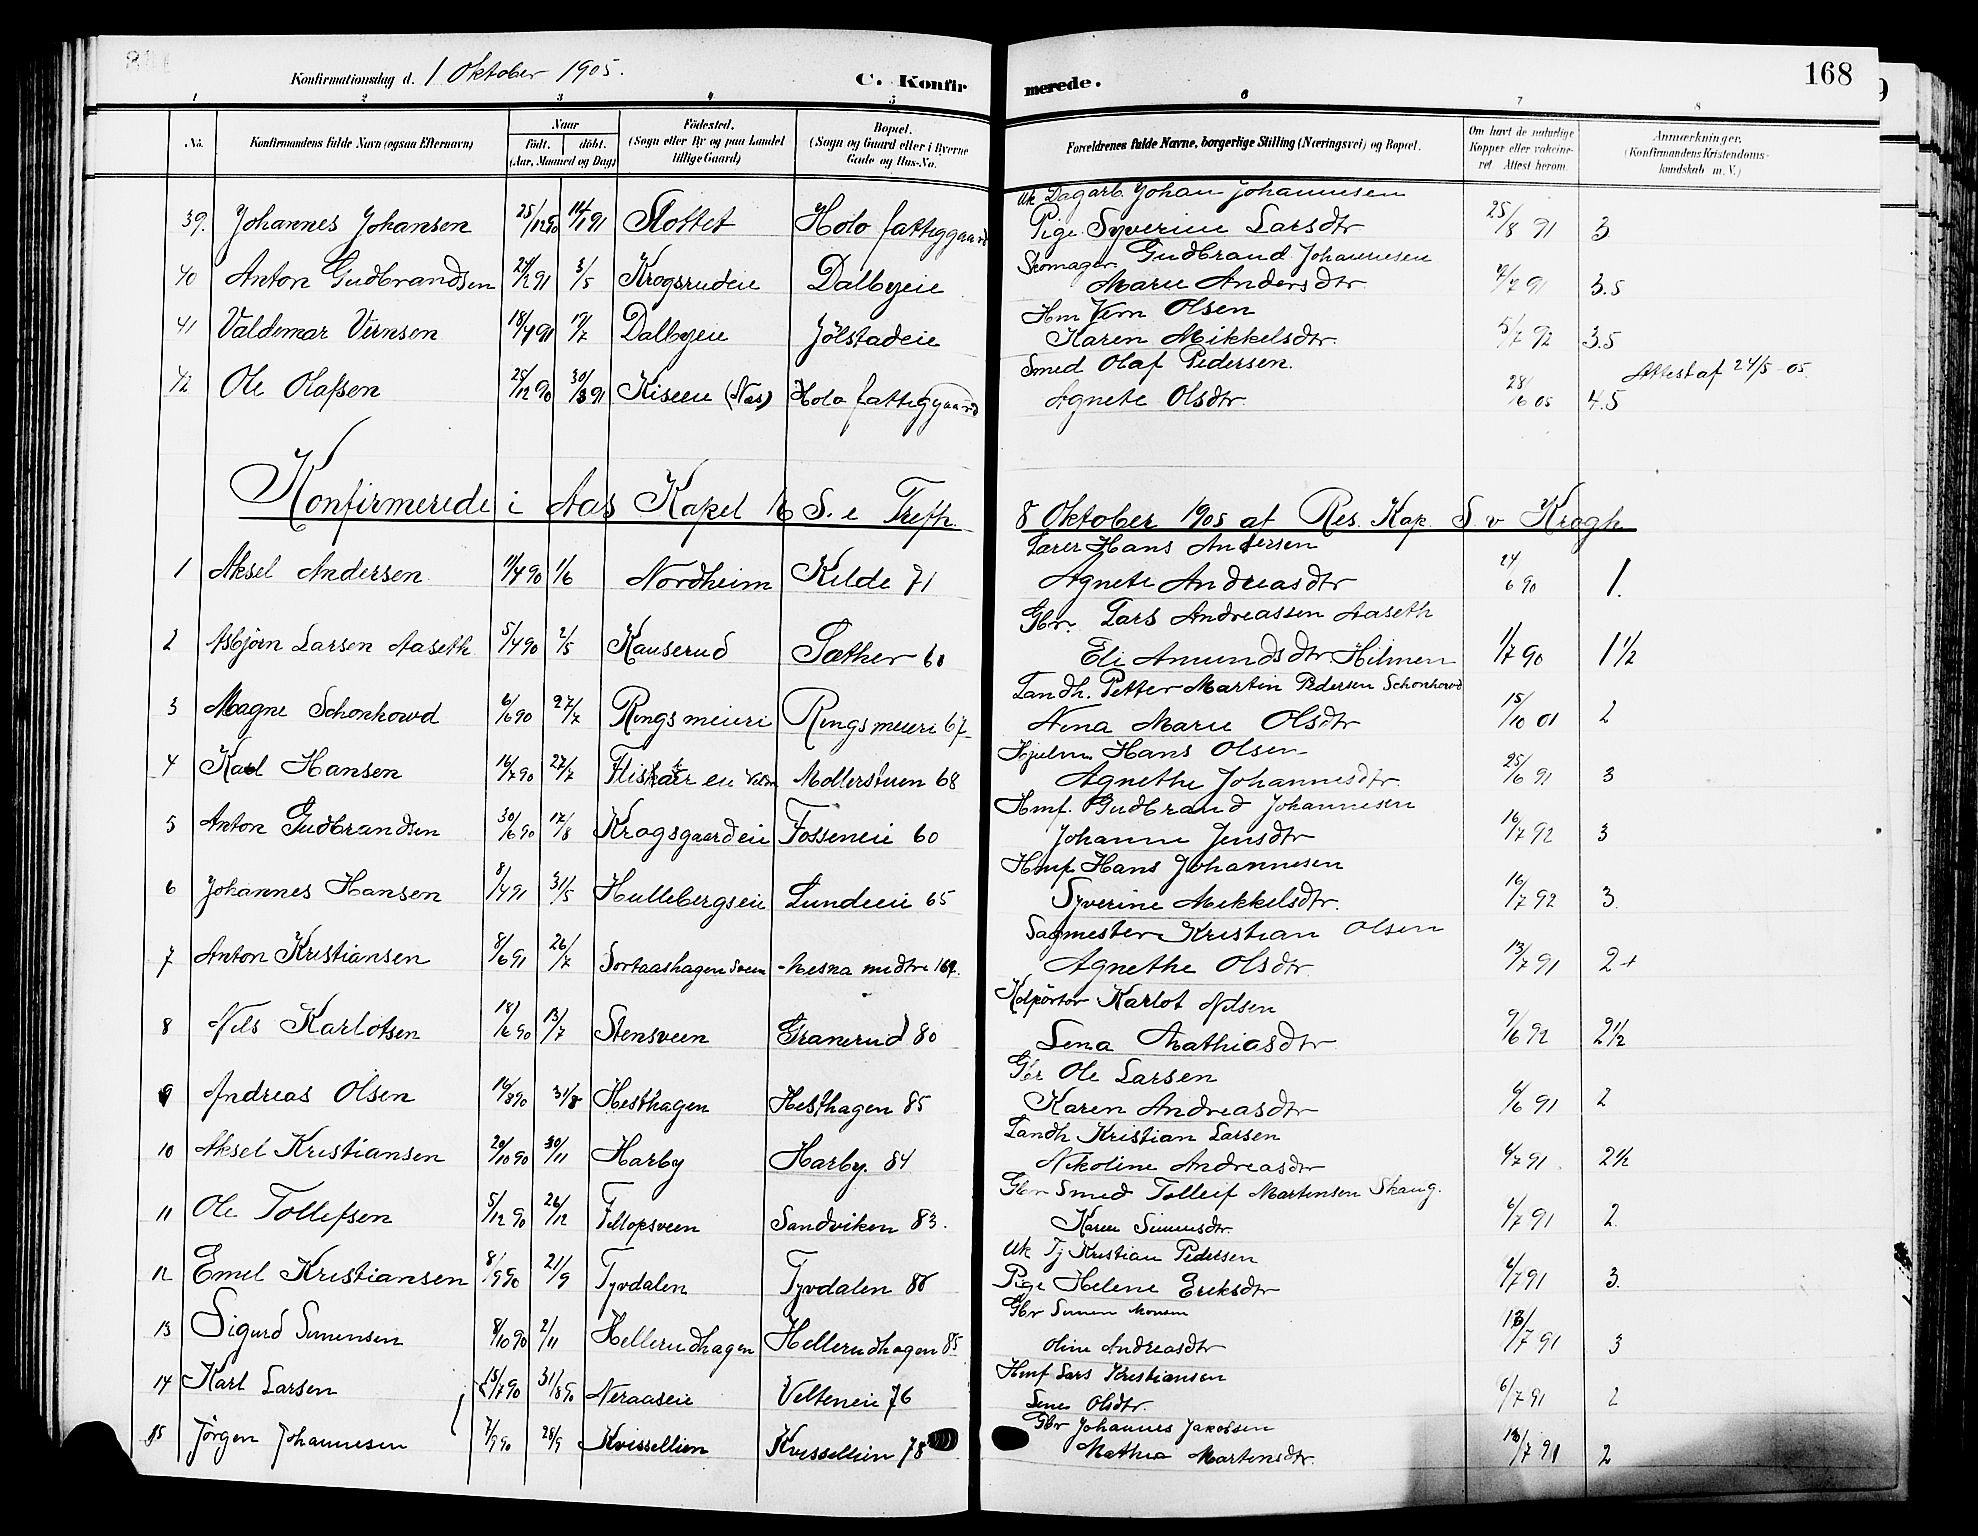 Konfirmationsdag d. 1 Oktober 1905. C. Konfirmerede. 168
1 2 3 4 5 6 7 8
No. Konfirmandens fulde Navn (ogsaa Efternavn) Naar Født. døbt. (Aar, Maaned og Dag) Födested. (Sogn eller By og paa Landet tillige Gaard) Bopæl. (Sogn og Gaard eller i Byerne Gade og Hus-No. Forældrenes fulde Navne, borgerlige Stilling (Næringsvei) og Bopæl. Om havt de naturlige Kopper eller vakcineret. Attest herom. Anmærkninger. (Konfirmandens Kristendomskundskab m. V.)
Uk Dagarb. Johan Johannesen
39. Johannes Johansen 25/12 90 11/1 91 Slottet Holo fattiggaard Pige Syverine Larsdtr 25/8 91 3
Skomager Gudbrand Johannesen
40 Anton Gudbrandsen 24/2 91 3/5 Krogsrudeie Dalbyeie Marie Andersdtr 7/7 91 3.5
Hm Vern Olsen
41 Valdemar Vernsen 18/4 91 19/7 Dalbyeie Jølstadeie Karen Mikkelsdtr 5/7 92 3.5
Smed Olaf Pedersen. Attest af 24/5-05.
42 Ole Olafsen 25/12 90 30/3 91 Kiseeie (Nes) Holo fattiggaard Agnete Olsdtr 28/6 05 4.5
Konfirmerede i Aas Kapel 16 S. e Trefh. 8 Oktober 1905 af Res. Kap. S. v Krogh
Lærer Hans Andersen
1 Aksel Andersen 11/4 90 1/6 Nordheim Kilde 71 Agnete Andreasdtr 24/6 90 1.
Gbr. Lars Andreassen Aaseth
2 Asbjørn Larsen Aaseth 5/4 90 2/5 Kauserud Sæther 60 Eli Amundsdtr Hilmen 1/7 90 1 1/2
Landh. Petter Martin Pedersen Schonhowd
3 Magne Schonhowd 6/6 90 27/7 Ringsmeieri Ringsmeieri 67 Nina Marie Olsdtr 15/10 01 2
Hjulm. Hans Olsen
4 Karl Hansen 16/7 90 27/7 Flis Møllerstuen 68 Agnethe Johannesdtr. 25/6 91 3
Hmf. Gudbrand Johannesen
5 Anton Gudbrandsen 30/6 90 17/8 Krogsgaardeie Fosseneie 60 Johanne Jensdtr 16/7 92 3
Hmf. Hans Johannesen
6 Johannes Hansen 8/4 91 31/5 Hullebergseie Lundeeie 65 Syverine Mikkelsdtr. 16/7 92 3.
Sagmester Kristian Olsen
7 Anton Kristiansen 8/6 91 26/7 Sortaashagen Sveen Mesna midtre 169. Agnethe Olsdtr. 13/7 91 2+
Kolportør Karlot Nilsen
8 Nils Karlotsen 18/6 90 13/7 Stensveen Granerud 80 Lena Mathiasdtr 9/6 92 2 1/2
Gbr Ole Larsen
9 Andreas Olsen 16/8 90 31/8 Hesthagen Hesthagen 85 Karen Andreasdtr 6/6 91 2
Landh Kristian Larsen
10 Aksel Kristiansen 20/10 90 30/11 Harby Harby. 84 Nikoline Andreasdtr 6/7 91. 2 1/2
Gbr Smed Tolleif Martensen Skaug.
11 Ole Tollefsen 5/12 90 26/12 Fillopsveen Sandviken 83. Karen Simensdtr. 6/7 91 2.
Uk Tj Kristian Pedersen
12 Emil Kristiansen 8/9 90 21/9 Tyvdalen Tyvdalen 86 Pige Helene Eriksdtr 6/7 91 3.
Gbr Simen Monsen
13 Sigurd Simensen 8/10 90 2/11 Hellerudhagen Hellerudhagen 85 Oline Andreasdtr 13/7 91 3
Hmf Lars Kristiansen
14 Karl Larsen 15/7 90 31/8 90 Neraaseie Velteneie 76 Olsdtr. 6/7 91 2
Gbr Johannes Jakobsen
15 Jørgen Johannesen 7/9 90 28/9 Kvissellien Kvissellien 78 Mathea Martensdtr. 13/7 91 2